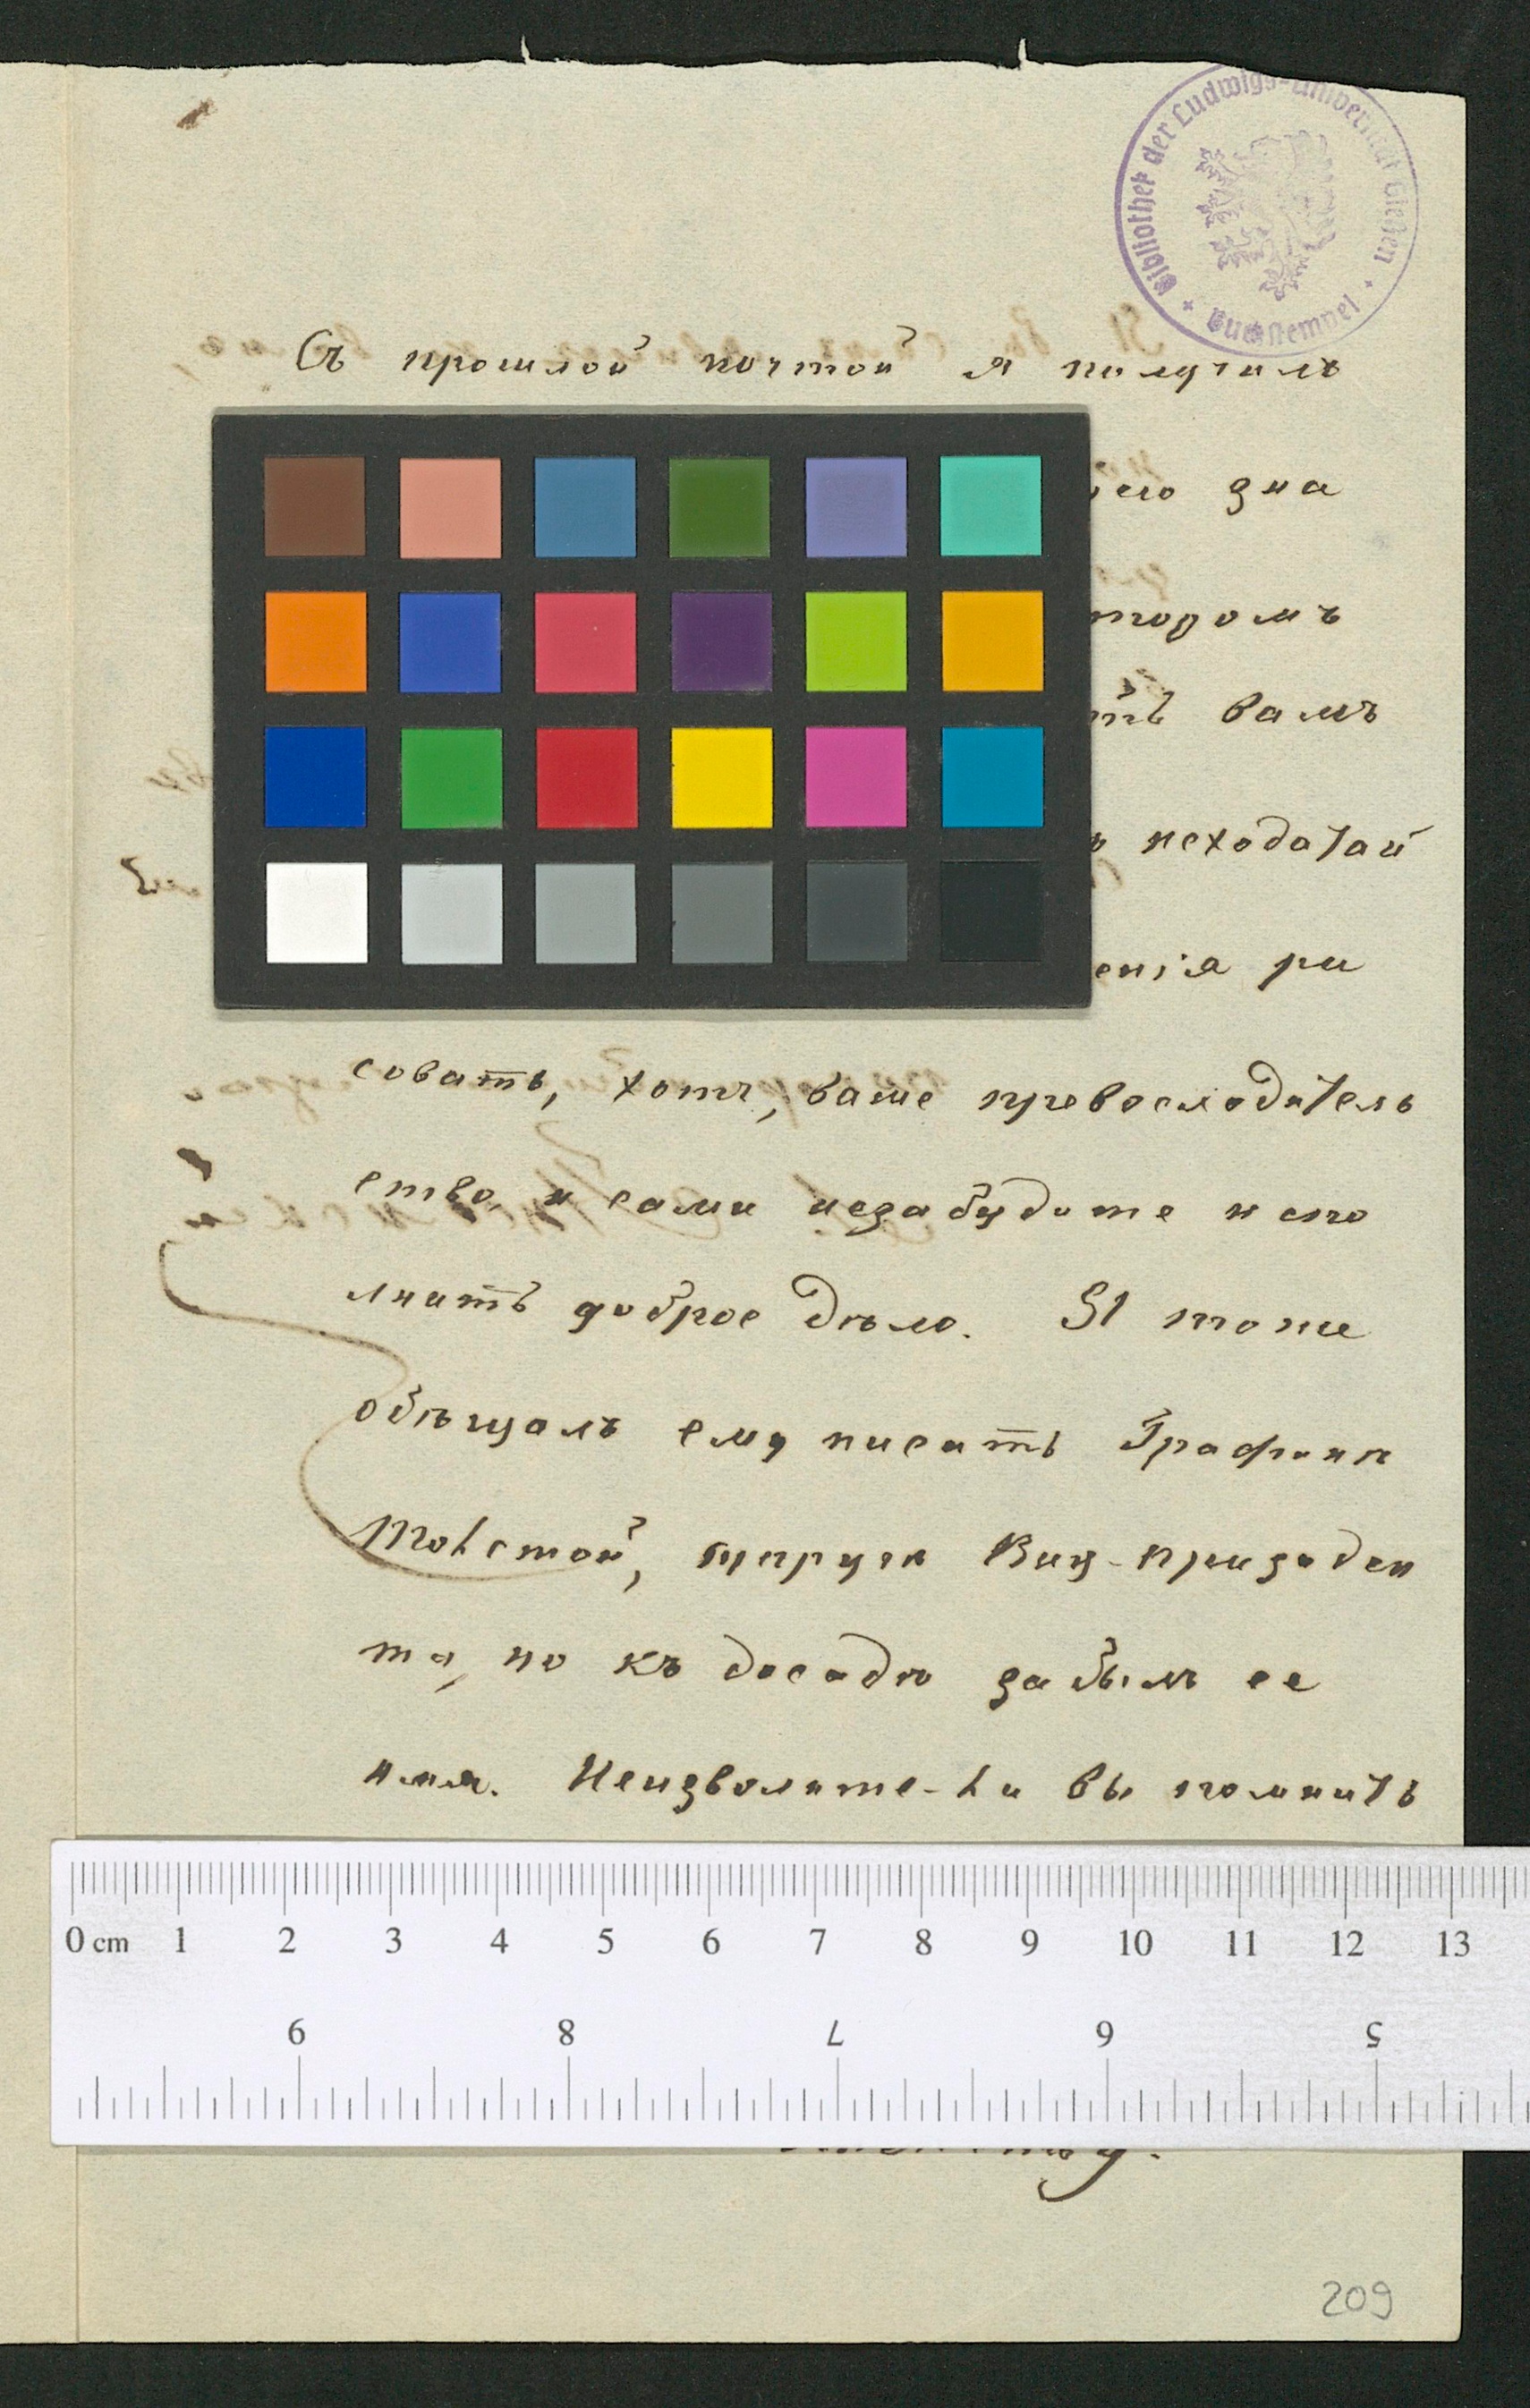 Bibliothek der Ludwigs-Universität Gießen
Buchstempel
Съ прошлой почтой я получилъ
его дна
вамъ
исходатай
енія ри
совать, хотя, ваше превосходитель
ство, и сами незабудите испо
лнить доброе дѣло. Я тоже
обѣщалъ ему писать Графинѣ
Толстой, супруги Виц-призиден
та, но къ досадѣ забылъ ее
имя. Неизволите-ли вы помнить
0 cm 1 2 3 4 5 6 7 8 9 10 11 12 13
9 8 7 6 5
209